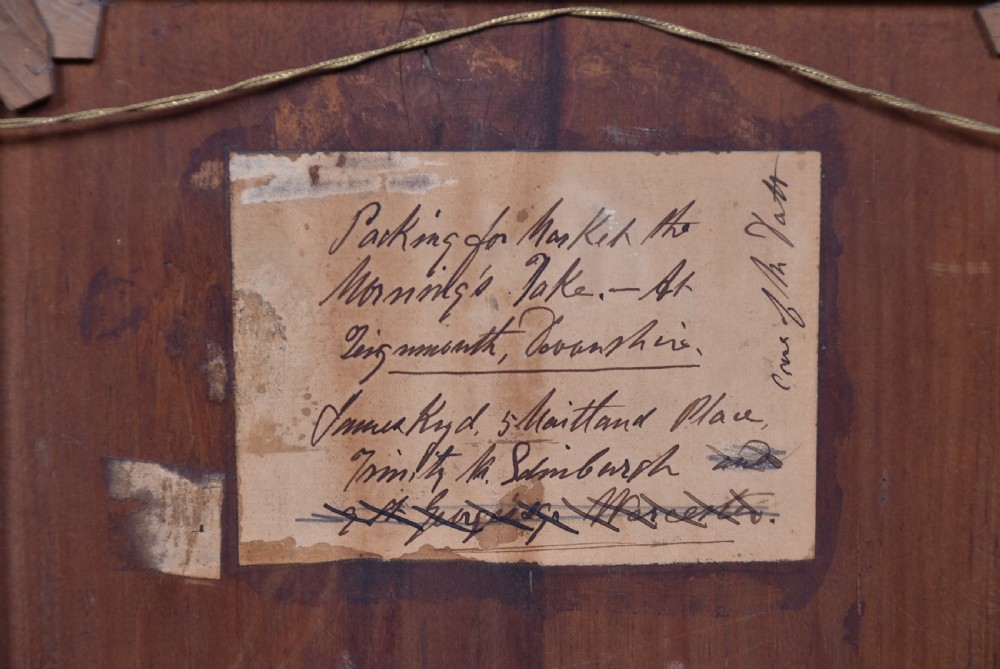 Packing for Market the
Morning's Take. — At
Teignmouth, Devonshire.
James Kyd. 5 Maitland Place,
Trinity Nr. Edinburgh and
Worcester.
of Mr